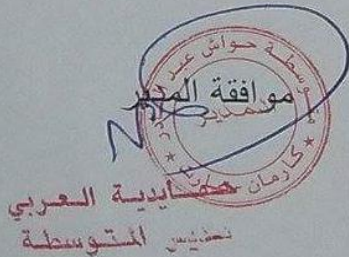 موافقة المدير
متوسطة حواش عبد
المدير
كارمان
حمايدية العربي
المتوسطة